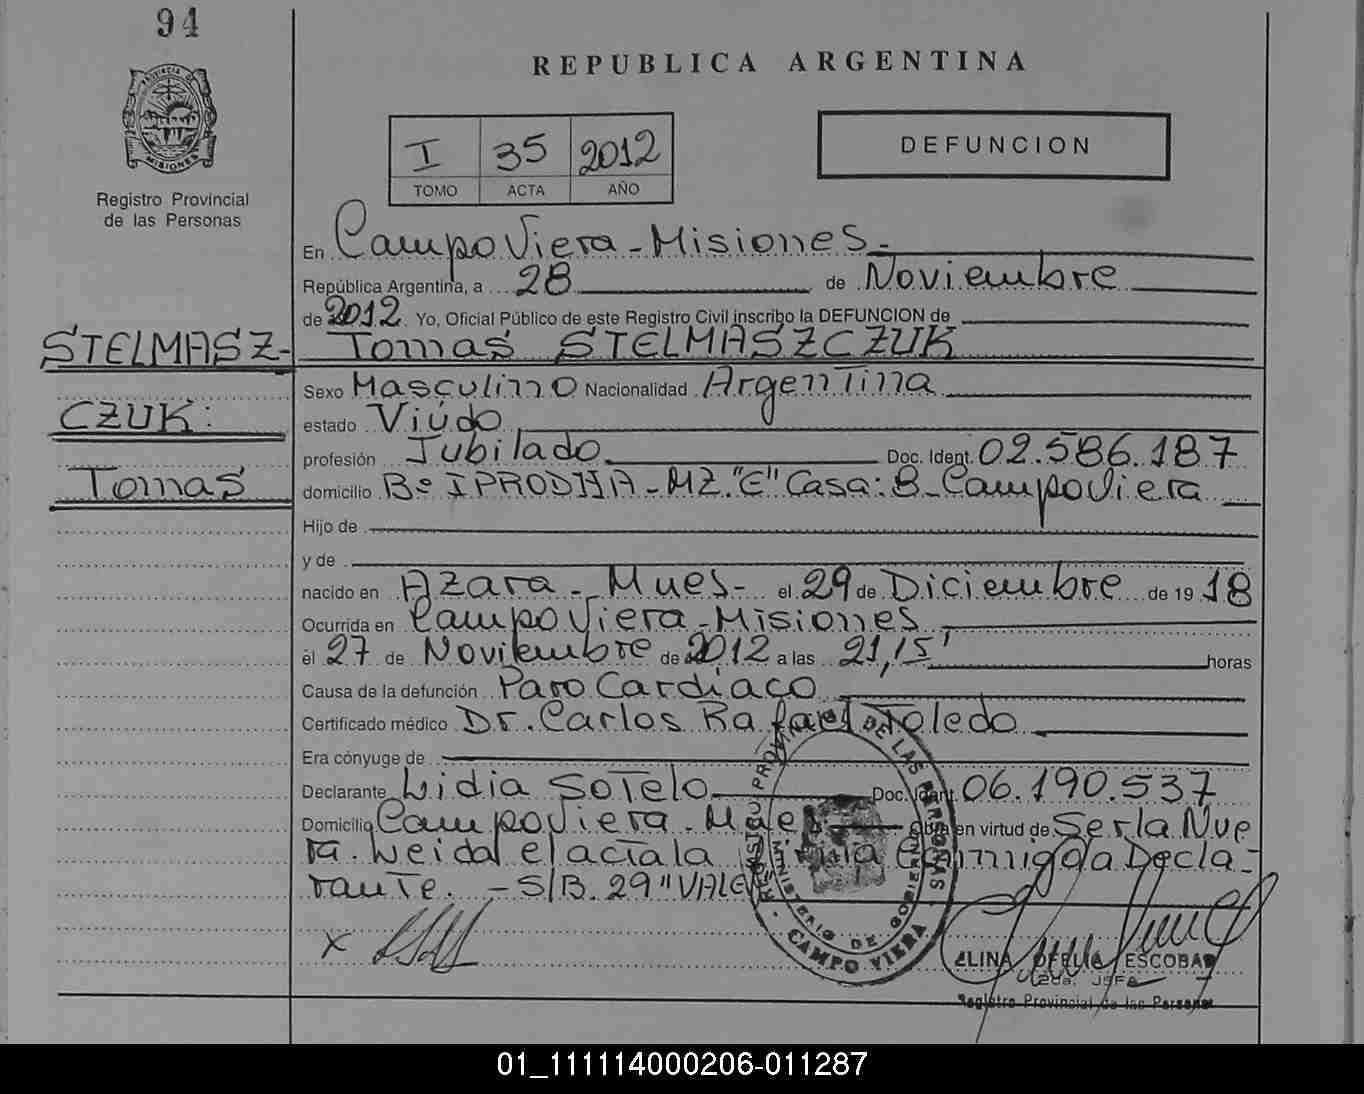 94
REPUBLICA ARGENTINA
PROVINCIA DE MISIONES
Registro Provincial
de las Personas
I 35 2012
TOMO ACTA AÑO
DEFUNCION
En Campo Viera - Misiones -
República Argentina, a 28 de Noviembre
de 2012. Yo, Oficial Público de este Registro Civil inscribo la DEFUNCION de
STELMASZ- Tomas STELMASZCZUK
Sexo Masculino Nacionalidad Argentina
CZUK:
estado Viúdo
profesión Jubilado Doc. Ident. 02.586.187
Tomas
domicilio Bº IPRODHA - MZ. "E" Casa: 8 - Campo Viera
Hijo de
y de
nacido en Azara - Mnes - el 29 de Diciembre de 1918
Ocurrida en Campo Viera - Misiones
el 27 de Noviembre de 2012 a las 21,15' horas
Causa de la defunción Paro Cardiaco
Certificado médico Dr. Carlos Rafael Toledo
Era cónyuge de
Declarante Lidia Sotelo Doc. Ident. 06.190.537
Domicilio Campo Viera - Mnes - Obra en virtud de Ser la Nue
ra. Leida el acta la firma Conmigo la Decla-
rante. - S/B. 29 "VALE
REGISTRO PROVINCIAL DE LAS PERSONAS
MINISTERIO DE GOBIERNO
CAMPO VIERA
X
ELINA OFELIA ESCOBAR
2da. JEFA
Registro Provincial de las Personas
01_111114000206-011287